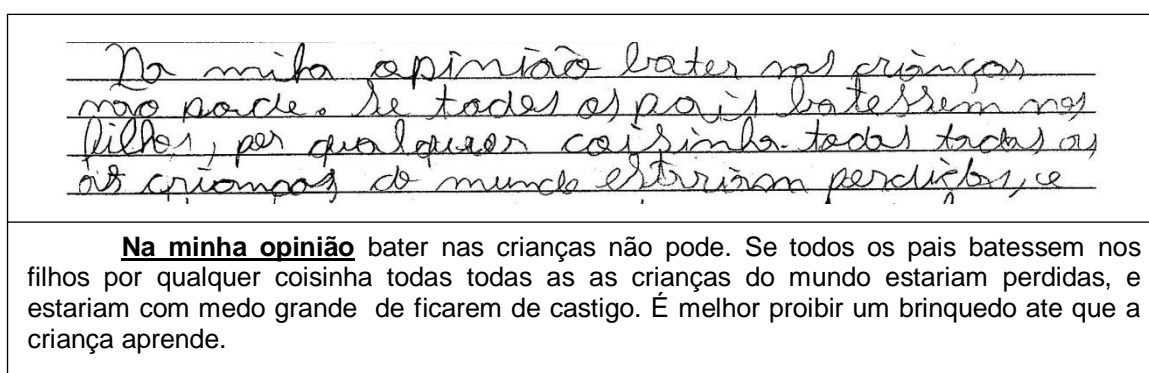 Na miha opinião bater nas crianças
nao pode. Se todos os pais batessem nos
filhos, por qualquer coisinha todas todas as
as crianças do mundo estiriam perdidas, e
Na minha opinião bater nas crianças não pode. Se todos os pais batessem nos
filhos por qualquer coisinha todas todas as as crianças do mundo estariam perdidas, e
estariam com medo grande de ficarem de castigo. É melhor proibir um brinquedo ate que a
criança aprende.